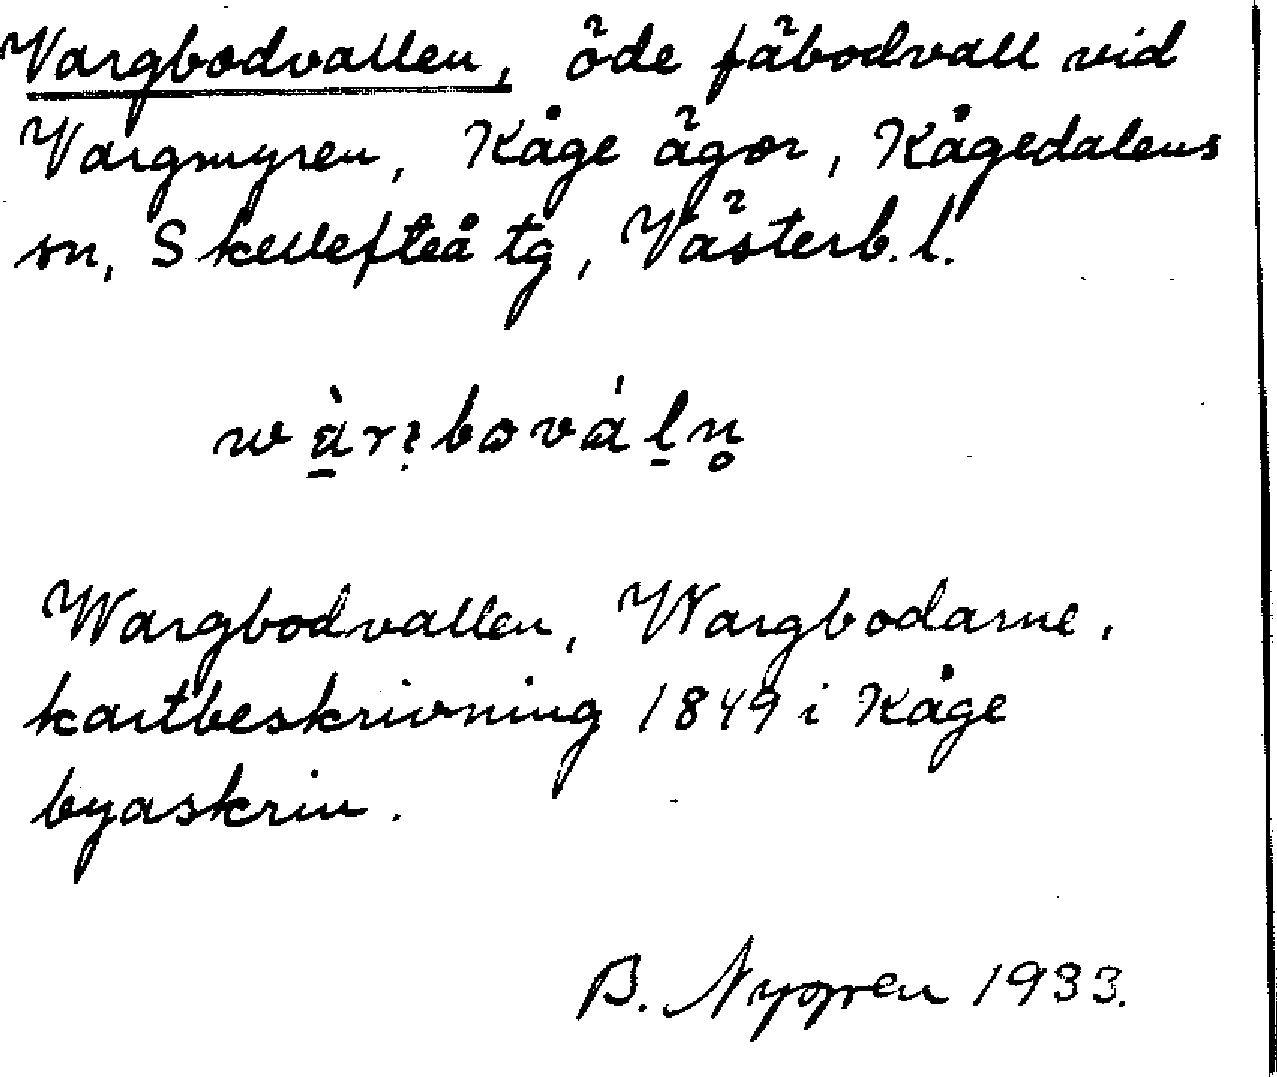 Vargbodvallen, öde fäbodvall vid
Vargmyren, Kåge ägor, Kågedalens
sn, Skellefteå tg, Västerb. l.
Wargbodvallen, Wargbodarne,
kartbeskrivning 1849 i Kåge
byaskrin.
B. Nygren 1933.